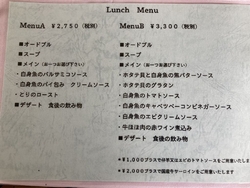 Lunch Menu
MenuA ￥2,750（税別）
■オードブル
■スープ
■メイン（お一つお選び下さい）
・白身魚のバルサミコソース
・白身魚のパイ包み クリームソース
・とりのロースト
■デザート 食後の飲み物
MenuB ￥3,300（税別）
■オードブル
■スープ
■メイン（お一つお選び下さい）
・ホタテ貝と白身魚の焦バターソース
・ホタテ貝のグラタン
・白身魚のトマトソース
・白身魚のキャベツベーコンビネガーソース
・白身魚のエビクリームソース
・牛ほほ肉の赤ワイン煮込み
■デザート 食後の飲み物
＊￥1,000プラスで仔羊又はエビのトマトソースをご用意いたします。
＊￥2,000プラスで国産牛サーロインをご用意いたします。